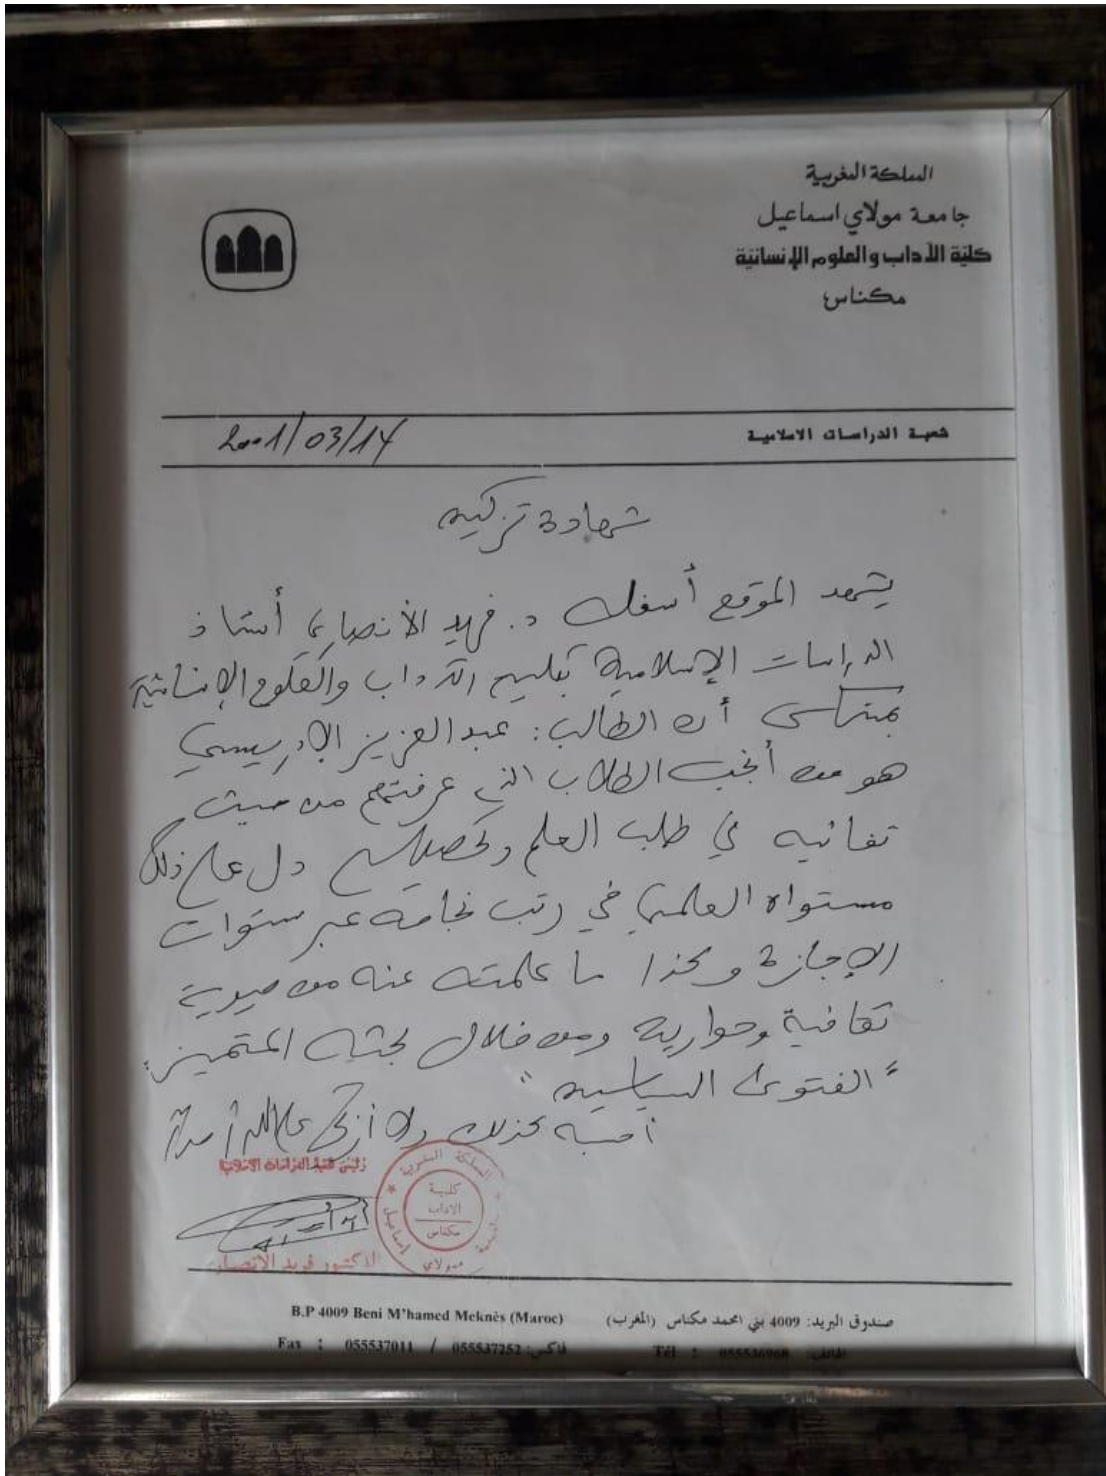 المملكة المغربية
جامعة مولاي اسماعيل
كلية الآداب والعلوم الإنسانية
مكناس
شعبة الدراسات الاسلامية
2001/03/14
شهادة تزكية
يشهد الموقع أسفله د. فريد الأنصاري أستاذ
الدراسات الإسلامية بكلية الآداب والعلوم الإنسانية
بمكناس أن الطالب: عبد العزيز الإدريسي
هو من أنجب الطلاب الذي عرفتهم من حيث
تفانيه في طلب العلم وتحصيله دل على ذلك
مستواه العلمي في رتب نجاحه عبر سنوات
الإجازة وكذا ما علمته عنه من حيوية
ثقافية وحوارية ومن خلال بحثه المتميز:
"الفتوى السياسية"
أحسبه كذلك ولا أزكي على الله أحدا
رئيس شعبة الدراسات الاسلامية
المملكة المغربية
كلية
الآداب
مكناس
مولاي اسماعيل
الدكتور فريد الانصاري
صندوق البريد: 4009 بني امحمد مكناس (المغرب) B.P 4009 Beni M'hamed Meknès (Maroc)
الهاتف: Tél : 055536968 فاكس: Fax : 055537011 / 055537252